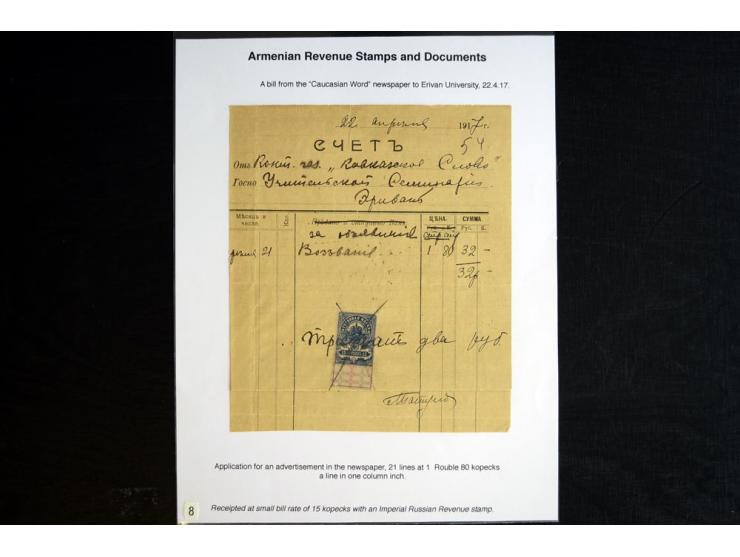 Armenian Revenue Stamps and Documents
A bill from the "Caucasian Word" newspaper to Erivan University, 22.4.17.
22 апреля 1917 г.
СЧЕТЪ 54
Отъ Конт. газ. „Кавказское Слово"
Госпо Учительской Семинарiи
Эривань
Мѣсяцъ и число. ЦѢНА. СУММА
Руб. К.
за
21 Воззванiе 1 80 32 —
32р —
Тридцать два руб.
Application for an advertisement in the newspaper, 21 lines at 1 Rouble 80 kopecks
a line in one column inch.
8 Receipted at small bill rate of 15 kopecks with an Imperial Russian Revenue stamp.